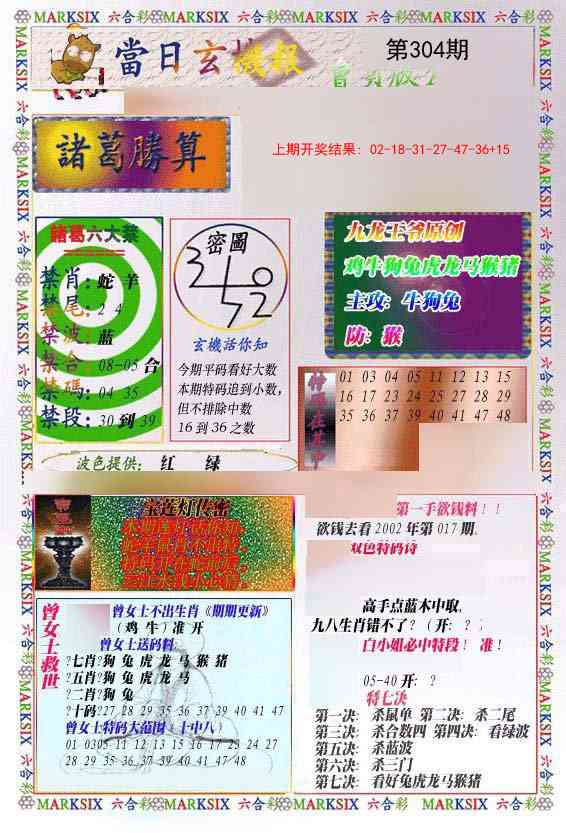 MARKSIX 六合彩 MARKSIX 六合彩 MARKSIX 六合彩 MARKSIX 六合彩
當日玄機報
第304期
諸葛勝算
上期开奖结果: 02-18-31-27-47-36+15
諸葛六大禁
禁肖: 蛇 羊
禁尾: 2 4
禁波: 蓝
禁合: 08-05 合
禁碼: 04 35
禁段: 30 到 39
密圖
玄機活你知
今期平码看好大数
本期特码追到小数,
但不排除中数
16 到 36 之数
九龙王爷原创
鸡牛狗兔虎龙马猴猪
主攻: 牛狗兔
防: 猴
01 03 04 05 11 12 13 15
16 17 23 24 25 27 28 29
35 36 37 39 40 41 47 48
波色提供: 红 绿
宝莲灯传密
第一手欲钱料!!
欲钱去看 2002 年第 017 期.
双色特码诗
高手点蓝木中取,
九八生肖错不了? (开: ?)
白小姐必中特段! 准!
05-40 开: ?
特七决
第一决: 杀鼠单 第二决: 杀二尾
第三决: 杀合数四 第四决: 看绿波
第五决: 杀蓝波
第六决: 杀三门
第七决: 看好兔虎龙马猴猪
曾女士救世
曾女士不出生肖《期期更新》
(鸡 牛) 准 开
曾女士送码料
?七肖?狗 兔 虎 龙 马 猴 猪
?五肖?狗 兔 虎 龙 马
?二肖?狗 兔
?十码?27 28 29 35 36 37 39 40 41 47
曾女士特码大范围(十中八)
01 0305 11 12 13 15 16 17 23 24 27
28 29 35 36 37 39 40 41 47 48
MARKSIX 六合彩 MARKSIX 六合彩 MARKSIX 六合彩 MARKSIX 六合彩